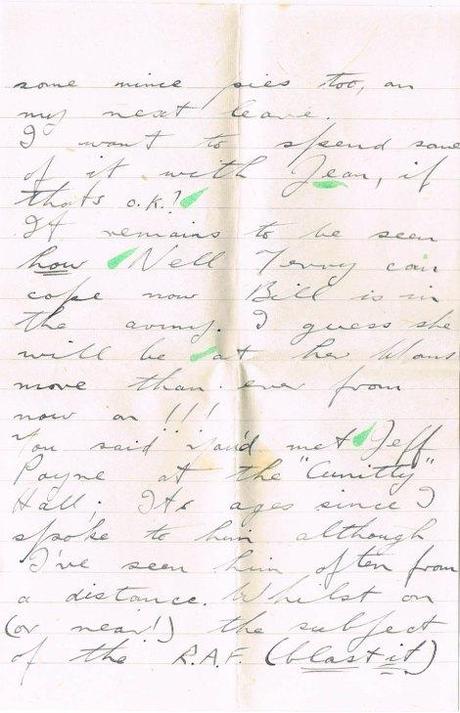 some mince pies too, on
my next leave.
I want to spend some
of it with Jean, if
thats o.k.?
It remains to be seen
how Nell Terry can
cope now Bill is in
the army. I guess she
will be at her Mans
more than ever from
now on !!!
You said you'd met Jeff
Payne at the "Cunitty"
Hall; Its ages since I
spoke to him although
I've seen him often from
a distance. Whilst on
(or near!) the subject
of the R.A.F. (blast it)